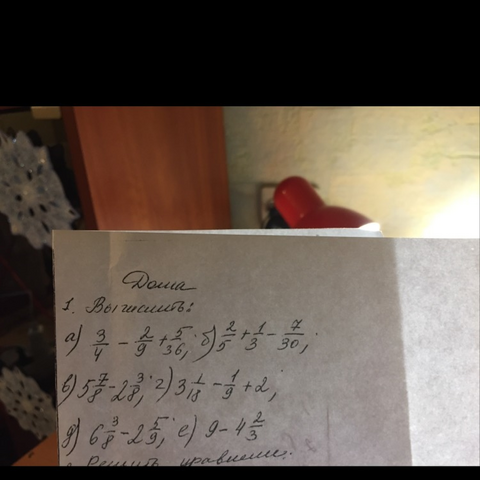 Дома
1. Вычислить:
а) 3/4 - 2/9 + 5/36; б) 2/5 + 1/3 - 7/30;
в) 5 7/8 - 2 3/8; г) 3 1/18 - 1/9 + 2;
д) 6 3/8 - 2 5/9; е) 9 - 4 2/3
Решить уравнение: